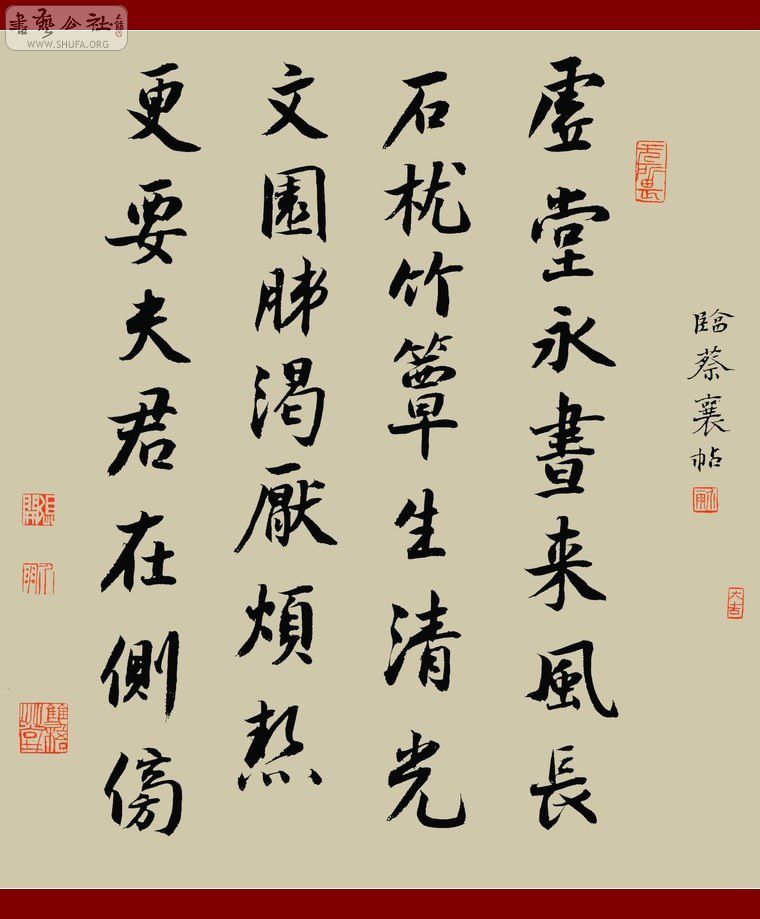 書藝公社
WWW.SHUFA.ORG
臨蔡襄帖
大吉
无所畏
虚堂永晝来風長
石枕竹簟生清光
文園肺渴厭煩熱
更要夫君在側傍